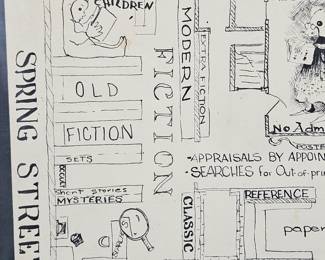 SPRING STREE
CHILDREN
OLD
FICTION
SETS
Short stories
MYSTERIES
FICTION
MODERN
EXTRA FICTION
CLASSIC
No Adm
POSTE
• APPRAISALS BY APPOIN
• SEARCHES for Out-of-prin
REFERENCE
paper